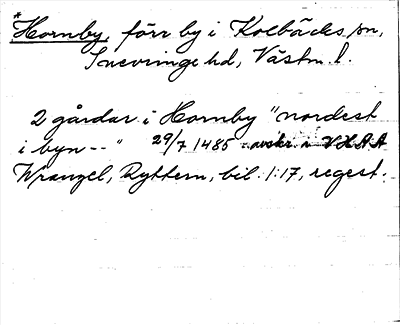 *Hornby, förr by i Kolbäcks sn,
Snevringe hd, Västm. l.
2 gårdar i Hornby "nordest
i byn --" 29/7 1485 avskr. i VHAA
Wrangel, Ryttern, bil. 1:17, regest.